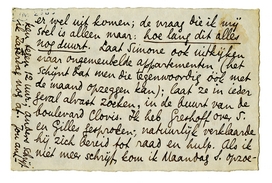 er wel uit komen; de vraag die ik mij
stel is alleen maar: hoe lang dit alles
nog duurt. Laat Simone ook uitkijken
naar ongemeubelde appartementen (het
schijnt dat men die tegenwoordig ook met
de maand opzeggen kan); laat ze in ieder
geval alvast zoeken, in de buurt van de
boulevard Clovis. Ik heb Greshoff over S.
en Gilles gesproken; natuurlijk verklaarde
hij zich bereid tot raad en hulp. Als ik
niet meer schrijf, kom ik Maandag S. opzoe-